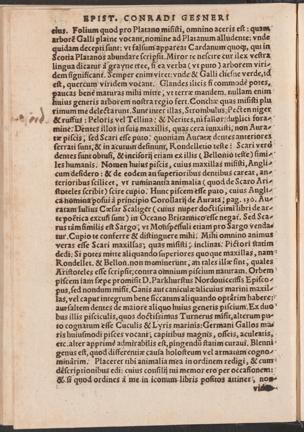 EPIST. CONRADI GESNERI
eius. Folium quod pro Platano misisti, omnino aceris est: quam
arborē Galli plaine vocant, nomine ad Platanum alludente: vnde
quidam decepti sunt: vt falsum appareat Cardanum quoq;, qui in
Scotia Platanos abundare scripsit. Miror te nescire cur ilex vestra
lingua dicatur
dem significant. Semper enim viret: vnde & Galli chesne verde, id
est, quercum viridem vocant. Glandes ilicis si commodè potes,
paucas benè maturas mihi mitte, vt terræ mandem. nullam enim
huius generis arborem nostra regio fert. Conchæ quas misisti plu
rimum me delectarunt. Sunt inter illas, Strombulus, Pecten niger
& ruffus: Peloris vel Tellina: & Nerites, ni fallor: duplici foramine.
Dentes illos in
piscis, sed Scari esse puto: quoniam Auratæ dentes anteriores
serrati sunt, & in acutum desinunt, Rondelletio teste: Scari verò
dentes sunt obtusi, & incisorij etiam ex illis (Bellonio teste) similes
humanis. Nomen huius piscis, cuius maxillas misisti, Anglicum
desidero: & de eodem an superioribus dentibus careat, anterioribus
scilicet, vt ruminantia animalia (quod de Scaro Aristoteles
scribit) scire cupio. Hunc piscem esse puto, cuius Anglica
nomina posui à principio Corollarij de Aurata; pag. 130. Auratam
Iulius Cæsar Scaliger (cuius nuper doctissimi libri de arte
poëtica excusi sunt) in Oceano Britannico esse negat. Sed Scarus
similis est Sargo, vt Monspessuli etiam pro Sargo vendatur.
Cupio te conferre & distinguere mihi: Misi omnino animus
veras esse Scari maxillas; quas misisti, inclinat. Pictori statim
dedi. Si potes mitte aliquando superiores quoque maxillas, nam
Rondellet. & Bellon. non meminerunt, an tales illæ sint, quales
Aristoteles esse scripsit; contra omnium piscium naturam. Orbem
piscem iam sæpe promisit D. Parkhurstus Nordouicensis Episcopus,
sed nondum misit. Canis aut caniculæ alicuius marini maxillas,
vel caput integrum bene siccatum aliquando optârim habere:
aut saltem dentes de maiore aliquo huius generis piscium. Ex duobus
illis pisciculis, quos doctissimus Turnerus misit, alterum puto
cognatum esse Cuculis & Lyris marinis: Germani Gallos maris
huiusmodi pisces vocant, capitibus magnis, osseis, aculeatis,
etc. alter apprimè admirabilis est, pingendū statim curaui. Blenni
genus est, quod differentiæ causa holostreum vel armatum cognominârim.
Placeret tibi animalia mea in ordinem redigi, & cum
descriptionibus edi: cuius consilij tui memor ero per occasionem:
& si quod ordines à me in iconum libris positos attinet, non